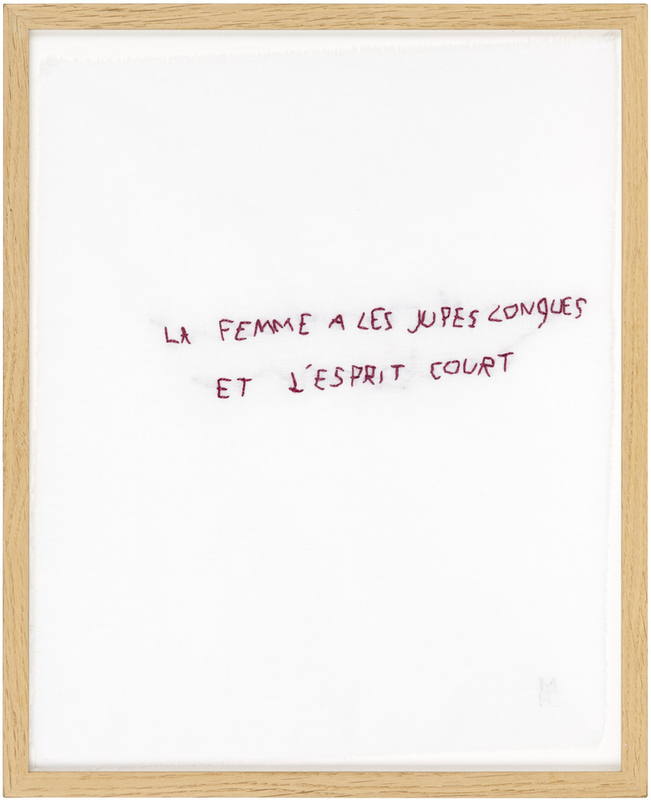 LA FEMME A LES JUPES LONGUES
ET L'ESPRIT COURT